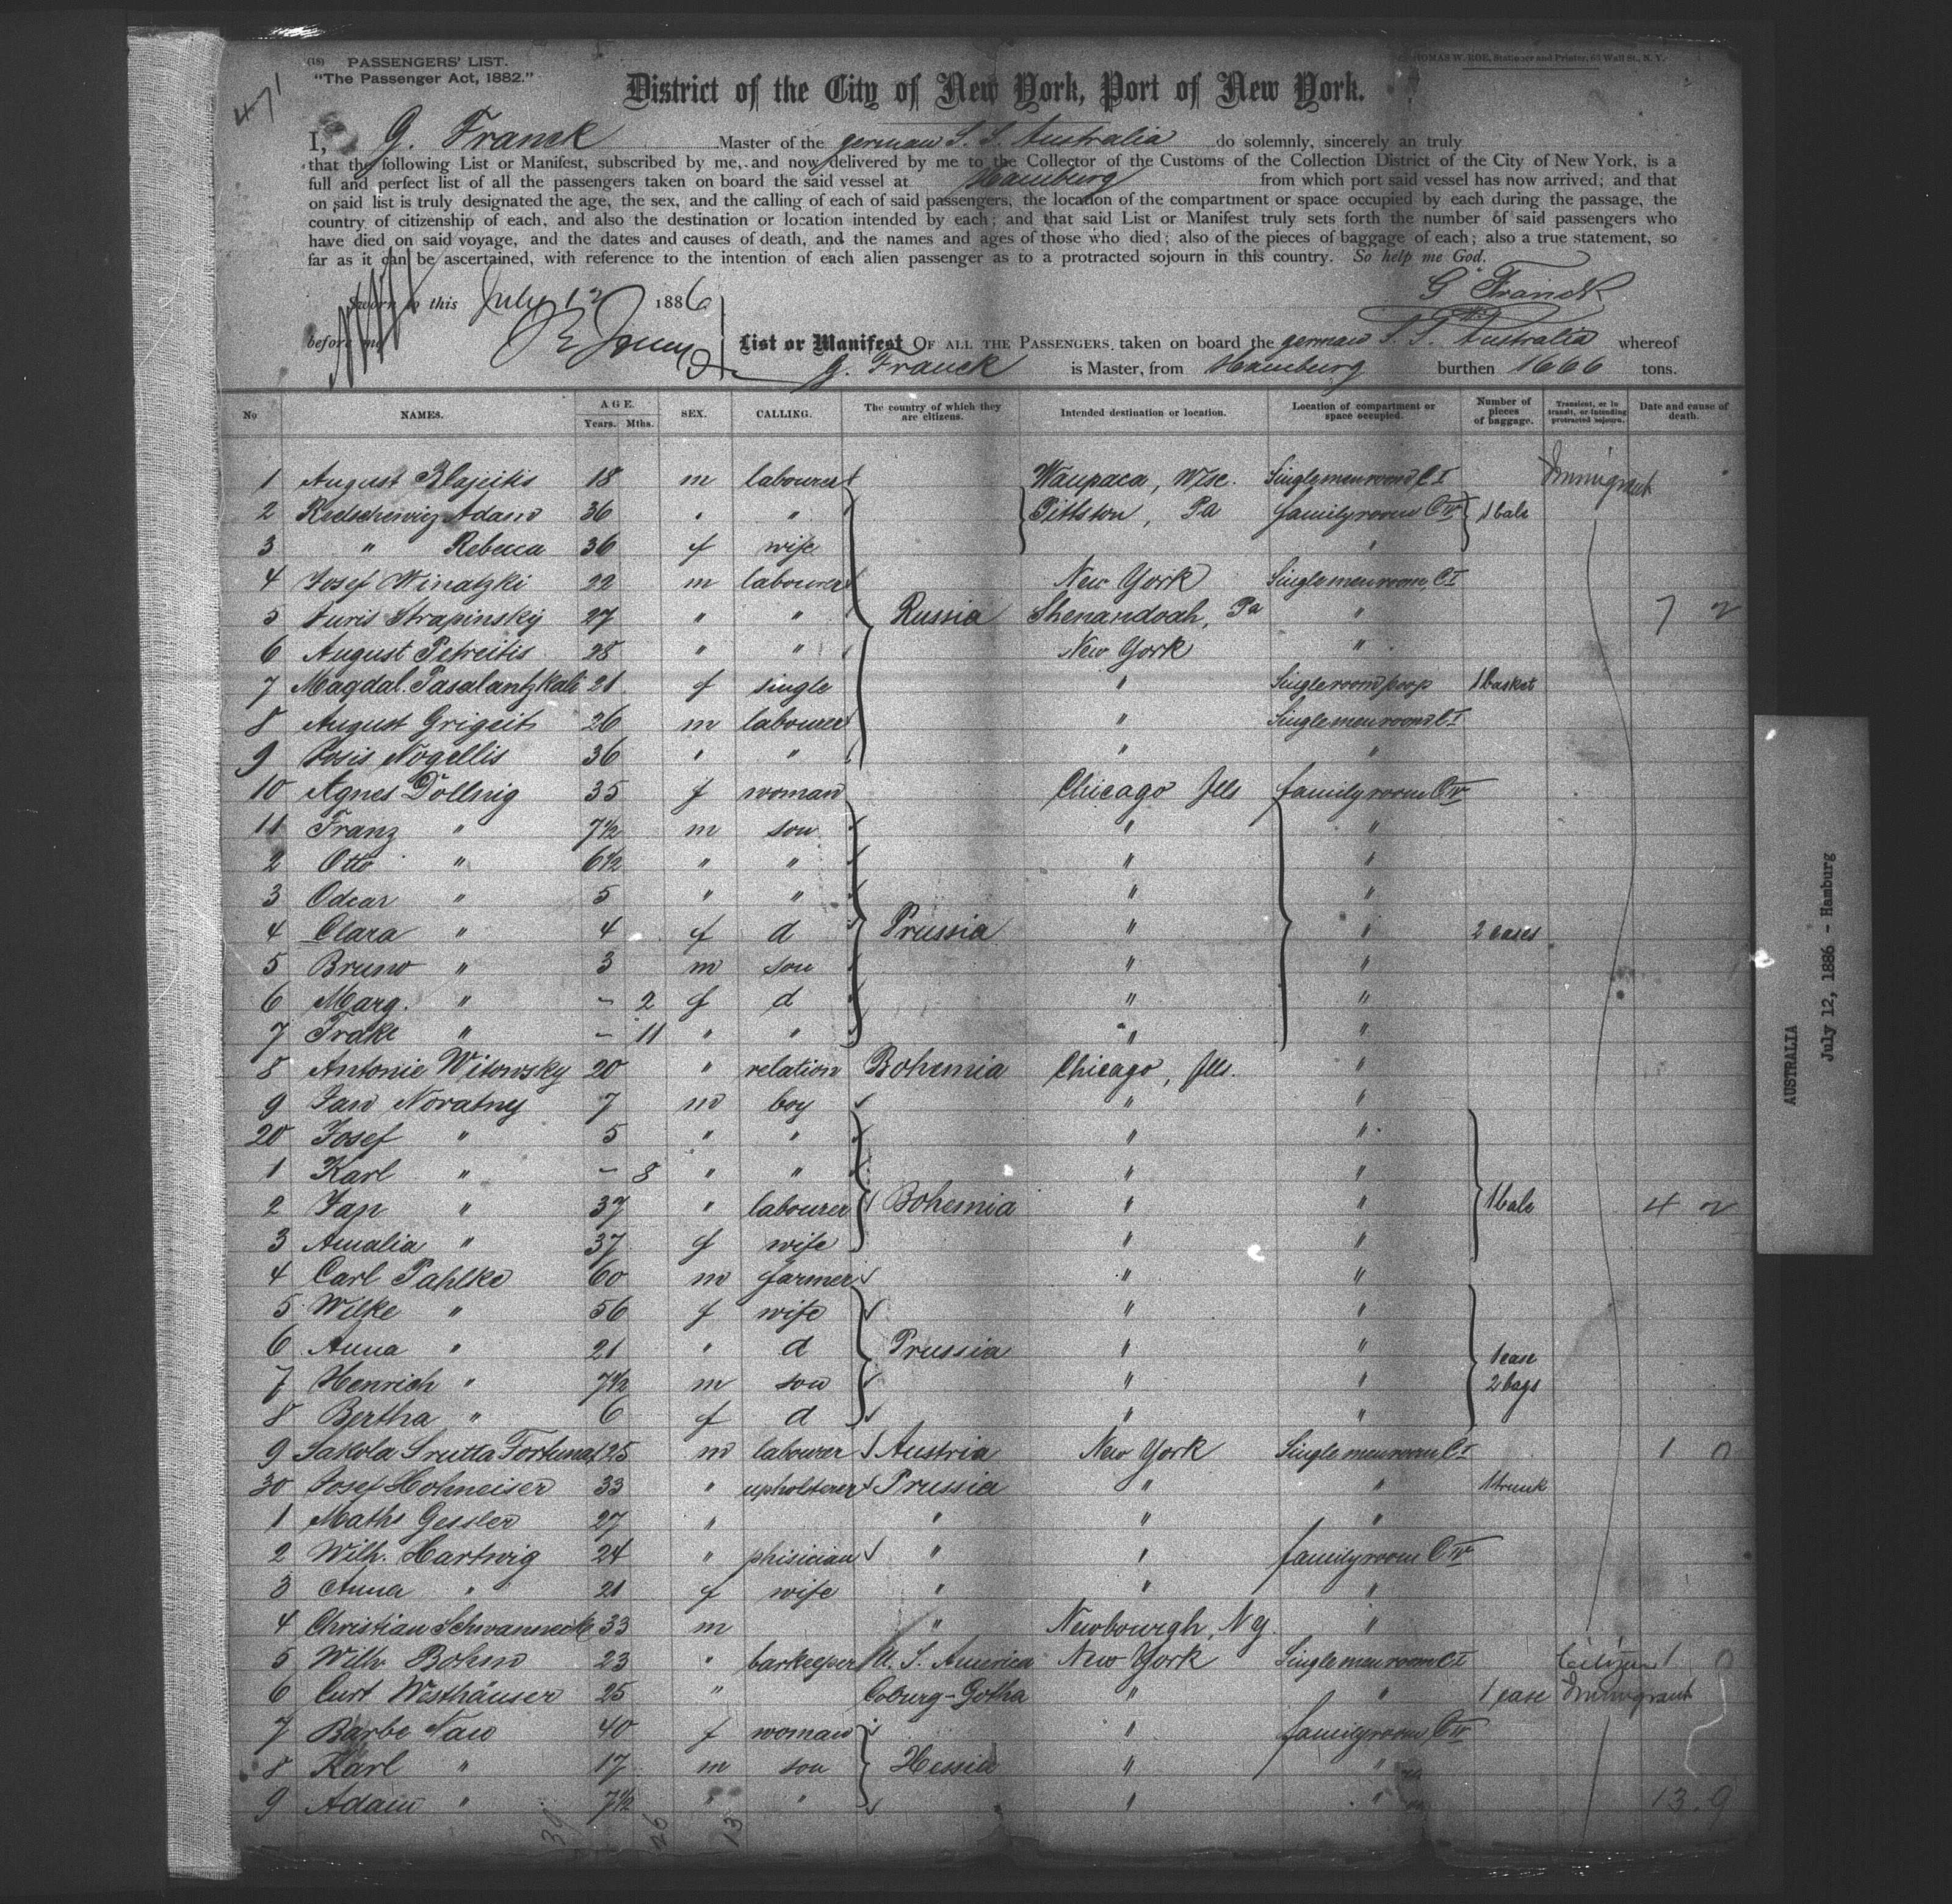 (18) PASSENGERS' LIST.
"The Passenger Act, 1882."
THOMAS W. ROE, Stationer and Printer, 63 Wall St., N. Y.
471
District of the City of New York, Port of New York.
I, G. Franck Master of the german S. S. Australia do solemnly, sincerely an truly
that the following List or Manifest, subscribed by me, and now delivered by me to the Collector of the Customs of the Collection District of the City of New York, is a
full and perfect list of all the passengers taken on board the said vessel at Hamburg from which port said vessel has now arrived; and that
on said list is truly designated the age, the sex, and the calling of each of said passengers, the location of the compartment or space occupied by each during the passage, the
country of citizenship of each, and also the destination or location intended by each; and that said List or Manifest truly sets forth the number of said passengers who
have died on said voyage, and the dates and causes of death, and the names and ages of those who died; also of the pieces of baggage of each; also a true statement, so
far as it can be ascertained, with reference to the intention of each alien passenger as to a protracted sojourn in this country. So help me God.
Sworn to this July 12 1886
G Franck
before me
List or Manifest OF ALL THE PASSENGERS taken on board the german S. S. Australia whereof
G. Franck is Master, from Hamburg burthen 1666 tons.
No NAMES. AGE. Years. Mths. SEX. CALLING. The country of which they are citizens. Intended destination or location. Location of compartment or space occupied. Number of pieces of baggage. Transient, or in transit, or intending protracted sojourn. Date and cause of death.
1 August Blajeitis 18 m labourer Waupaca, Wisc. Single men room, C I Immigrant
2 Adam 36 " " Pittston, Pa family room C IV 1 bale
3 " Rebecca 36 f wife "
4 Josef Winatzki 22 m labourer New York Single men room, C I
5 Juris Strapinsky 27 " " Russia Shenandoah, Pa " 7 2
6 August Petreitis 28 " " New York "
7 Magdal. 21 f single " Single room poop 1 basket
8 August Grigeit 26 m labourer " Single men room C I
9 Nogellis 36 " " " "
10 Agnes Döllnig 35 f woman Chicago Ills family room C IV
11 Franz " 7½ m son " "
2 Otto " 6½ " " " "
3 Odcar " 5 " " " "
4 Clara " 4 f d Prussia " " 2 cases
5 Bruno " 3 m son " "
6 Marg. " - 2 f d " "
7 " - 11 " " " "
8 Antonie Witowsky 20 " relation Bohemia Chicago, Ills. "
9 Jan Novatny 7 m boy " "
20 Josef " 5 " " " "
1 Karl " - 8 " " " "
2 Jan " 37 " labourer Bohemia " " 1 bale 4 2
3 Amalia " 37 f wife " "
4 Carl Pahlke 60 m farmer " "
5 Wilke " 56 f wife " "
6 Anna " 21 " d Prussia " " 1 case
7 Henrich " 7½ m son " " 2 bags
8 Bertha " 6 f d " "
9 25 m labourer Austria New York Single men room C I 1 0
30 Josef Hohneiser 33 " upholsterer Prussia " " 1 trunk
1 Maths Gessler 27 " " " "
2 Wilh. Hartwig 24 " phisician " " family room C IV
3 Anna " 21 f wife " " "
4 Christian Schwannecke 33 m " Newbourgh, N Y. "
5 Wilh Bohm 23 " barkeeper U. S. America New York Single men room C I Citizen 1 0
6 Curt Westhäuser 25 " Coburg-Gotha " " 1 case Immigrant
7 Barbe Nau 40 f woman " family room C IV
8 Karl " 17 m son Hessia " "
9 Adam " 7½ " " " " 13 9
39 26 13
AUSTRALIA
July 12, 1886 - Hamburg